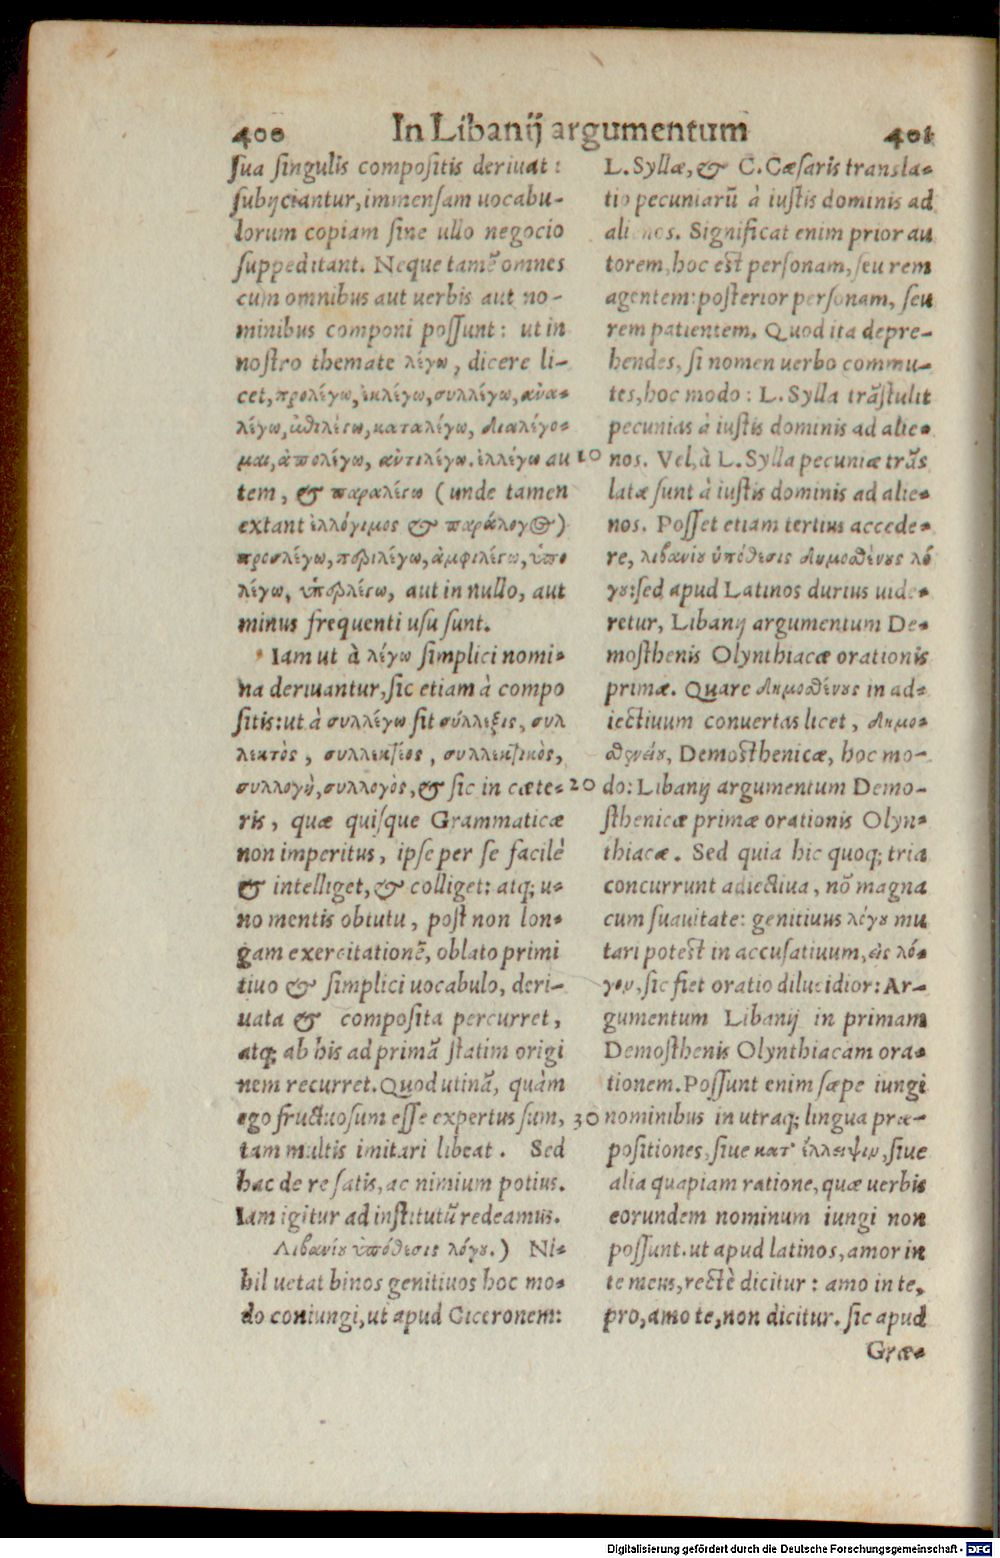 400 In Libanij argumentum 401
sua singulis compositis deriuat:
subijciantur, immensam uocabu-
lorum copiam sine ullo negocio
suppeditant. Neque tamē omnes
cum omnibus aut uerbis aut no-
minibus componi possunt: ut in
nostro themate λέγω, dicere li-
cet, προλέγω, ἐκλέγω, συλλέγω, ἀνα-
λέγω, ἐπιλέγω, καταλέγω, διαλέγο-
μαι, ἀπολέγω, ἀντιλέγω. ἐλλέγω au
tem, & παραλέγω (unde tamen
extant ἐλλόγιμος & παράλογος)
προσλέγω, περιλέγω, ἀμφιλέγω, ὑπο
λέγω, ὑπερλέγω, aut in nullo, aut
minus frequenti usu sunt.
Iam ut à λέγω simplici nomi-
na deriuantur, sic etiam à compo
sitis: ut à συλλέγω fit σύλλεξις, συλ
λεκτὸς, συλλεκτέος, συλλεκτικὸς,
συλλογὴ, συλλογὸς, & sic in cæte-
ris, quæ quisque Grammaticæ
non imperitus, ipse per se facilè
& intelliget, & colliget: atq; u-
no mentis obtutu, post non lon-
gam exercitationē, oblato primi
tiuo & simplici uocabulo, deri-
uata & composita percurret,
atq; ab his ad primā statim origi
nem recurret. Quod utinā, quàm
ego fructuosum esse expertus sum,
tam multis imitari libeat. Sed
hac de re satis, ac nimium potius.
Iam igitur ad institutū redeamus.
Λιβανίου ὑπόθεσις λόγου.) Ni-
hil uetat binos genitiuos hoc mo-
do coniungi, ut apud Ciceronem:
L. Syllæ, & C. Cæsaris transla-
tio pecuniarū à iustis dominis ad
alienos. Significat enim prior au
torem, hoc est personam, seu rem
agentem: posterior personam, seu
rem patientem. Quod ita depre-
hendes, si nomen uerbo commu-
tes, hoc modo: L. Sylla trāstulit
pecunias à iustis dominis ad alie-
10 nos. Vel, à L. Sylla pecuniæ trās
latæ sunt à iustis dominis ad alie-
nos. Posset etiam tertius accede-
re, λιβανίου ὑπόθεσις δημοσθένους λό
γου: sed apud Latinos durius uide-
retur, Libanij argumentum De-
mosthenis Olynthiacæ orationis
primæ. Quare δημοσθένους in ad-
iectiuum conuertas licet, δημο-
σθενείου, Demosthenicæ, hoc mo-
20 do: Libanij argumentum Demo-
sthenicæ primæ orationis Olyn-
thiacæ. Sed quia hic quoq; tria
concurrunt adiectiua, nō magna
cum suauitate: genitiuus λόγου mu
tari potest in accusatiuum, εἰς λό-
γον, sic fiet oratio dilucidior: Ar-
gumentum Libanij in primam
Demosthenis Olynthiacam ora-
tionem. Possunt enim sæpe iungi
30 nominibus in utraq; lingua præ-
positiones, siue κατ' ἔλλειψιν, siue
alia quapiam ratione, quæ uerbis
eorundem nominum iungi non
possunt. ut apud latinos, amor in
te meus, rectè dicitur: amo in te,
pro, amo te, non dicitur. sic apud
Græ-
Digitalisierung gefördert durch die Deutsche Forschungsgemeinschaft - DFG